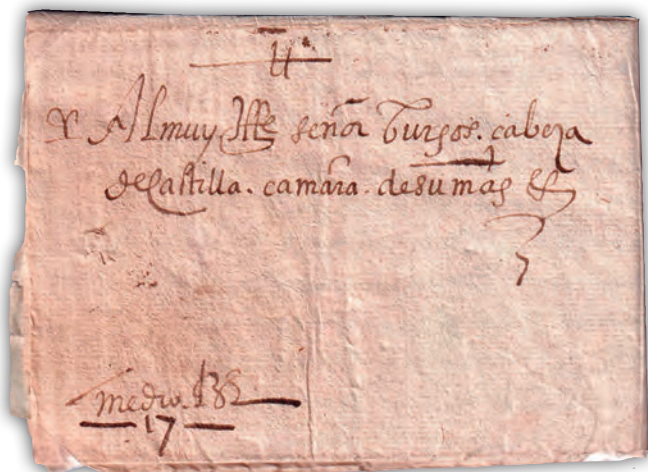 Al muy Ille señor Burgos. cabeza
de Castilla. camara. de su mag
medio.
17